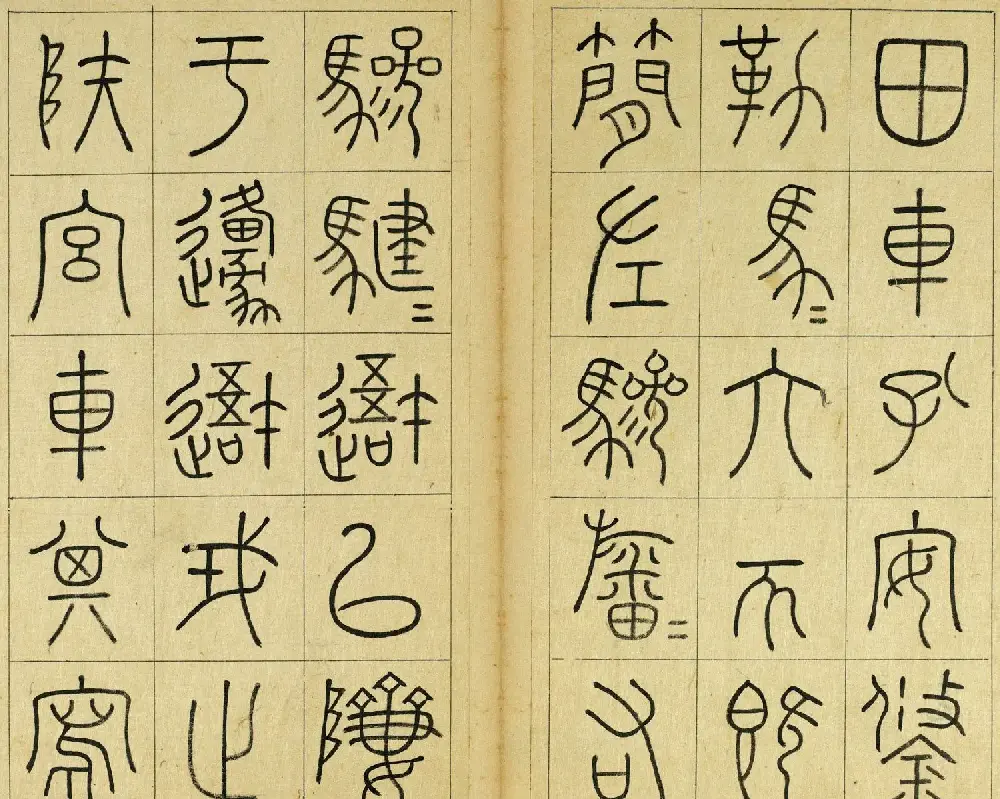 田車孔安鋚
勒馬=六既
簡左驂旛=右
驂騝=吾以隮
于邍吾戎止
陕宮車其寫